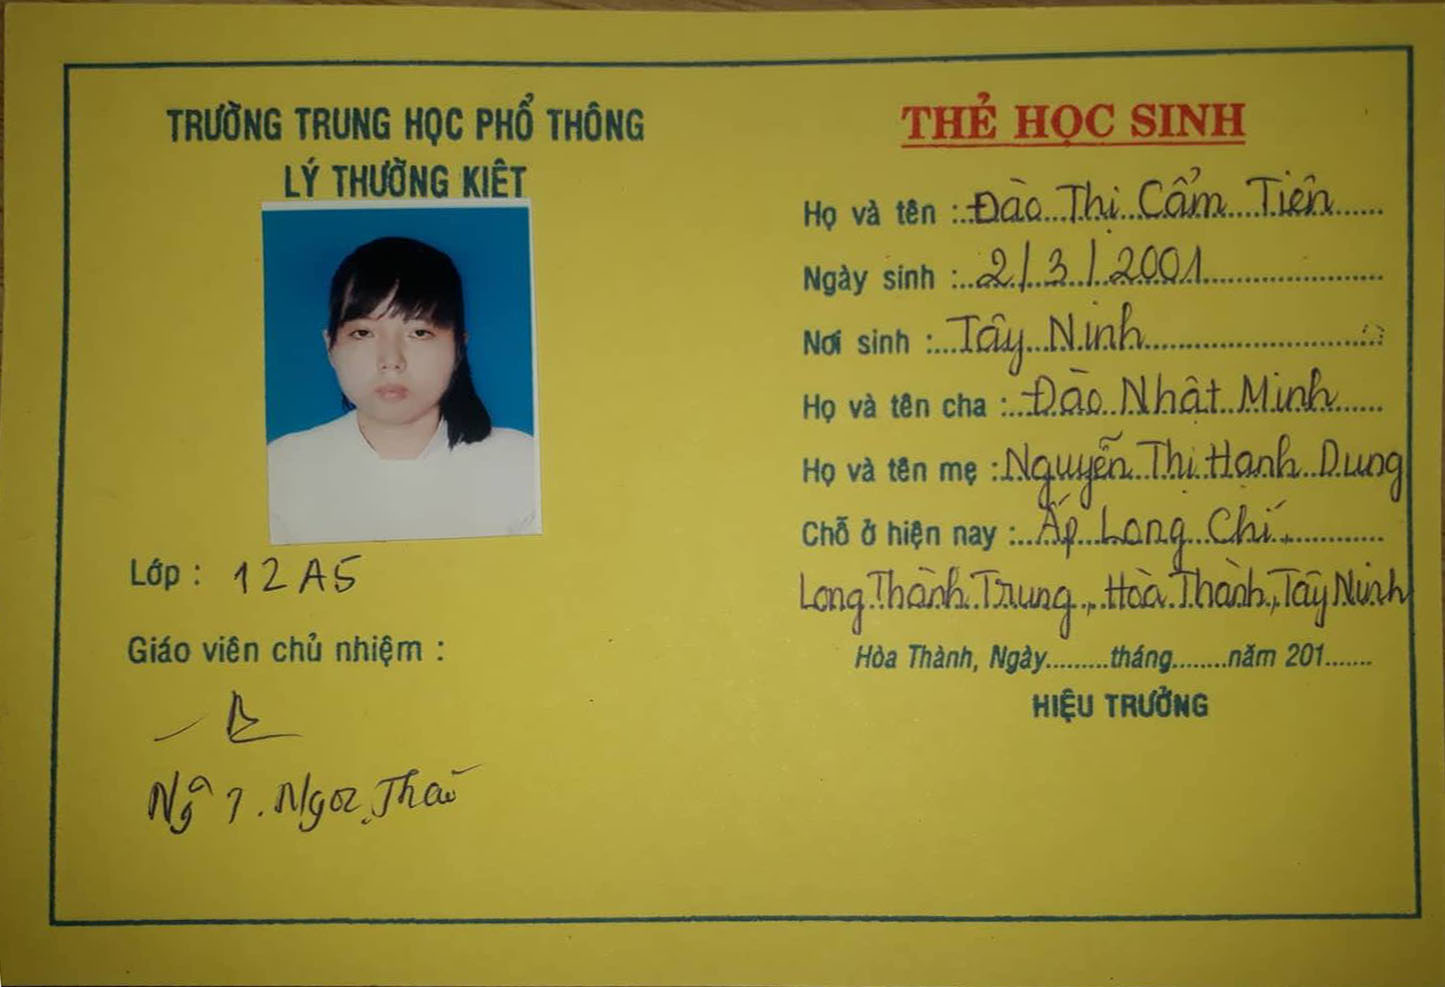 TRƯỜNG TRUNG HỌC PHỔ THÔNG
LÝ THƯỜNG KIỆT
Lớp : 12A5
Giáo viên chủ nhiệm :
Ngô T. Ngọc Thảo
THẺ HỌC SINH
Họ và tên : Đào Thị Cẩm Tiên
Ngày sinh : 2/3/2001
Nơi sinh : Tây Ninh
Họ và tên cha : Đào Nhật Minh
Họ và tên mẹ : Nguyễn Thị Hạnh Dung
Chỗ ở hiện nay : Ấp Long Chí,
Long Thành Trung, Hòa Thành, Tây Ninh
Hòa Thành, Ngày.........tháng........năm 201.......
HIỆU TRƯỞNG